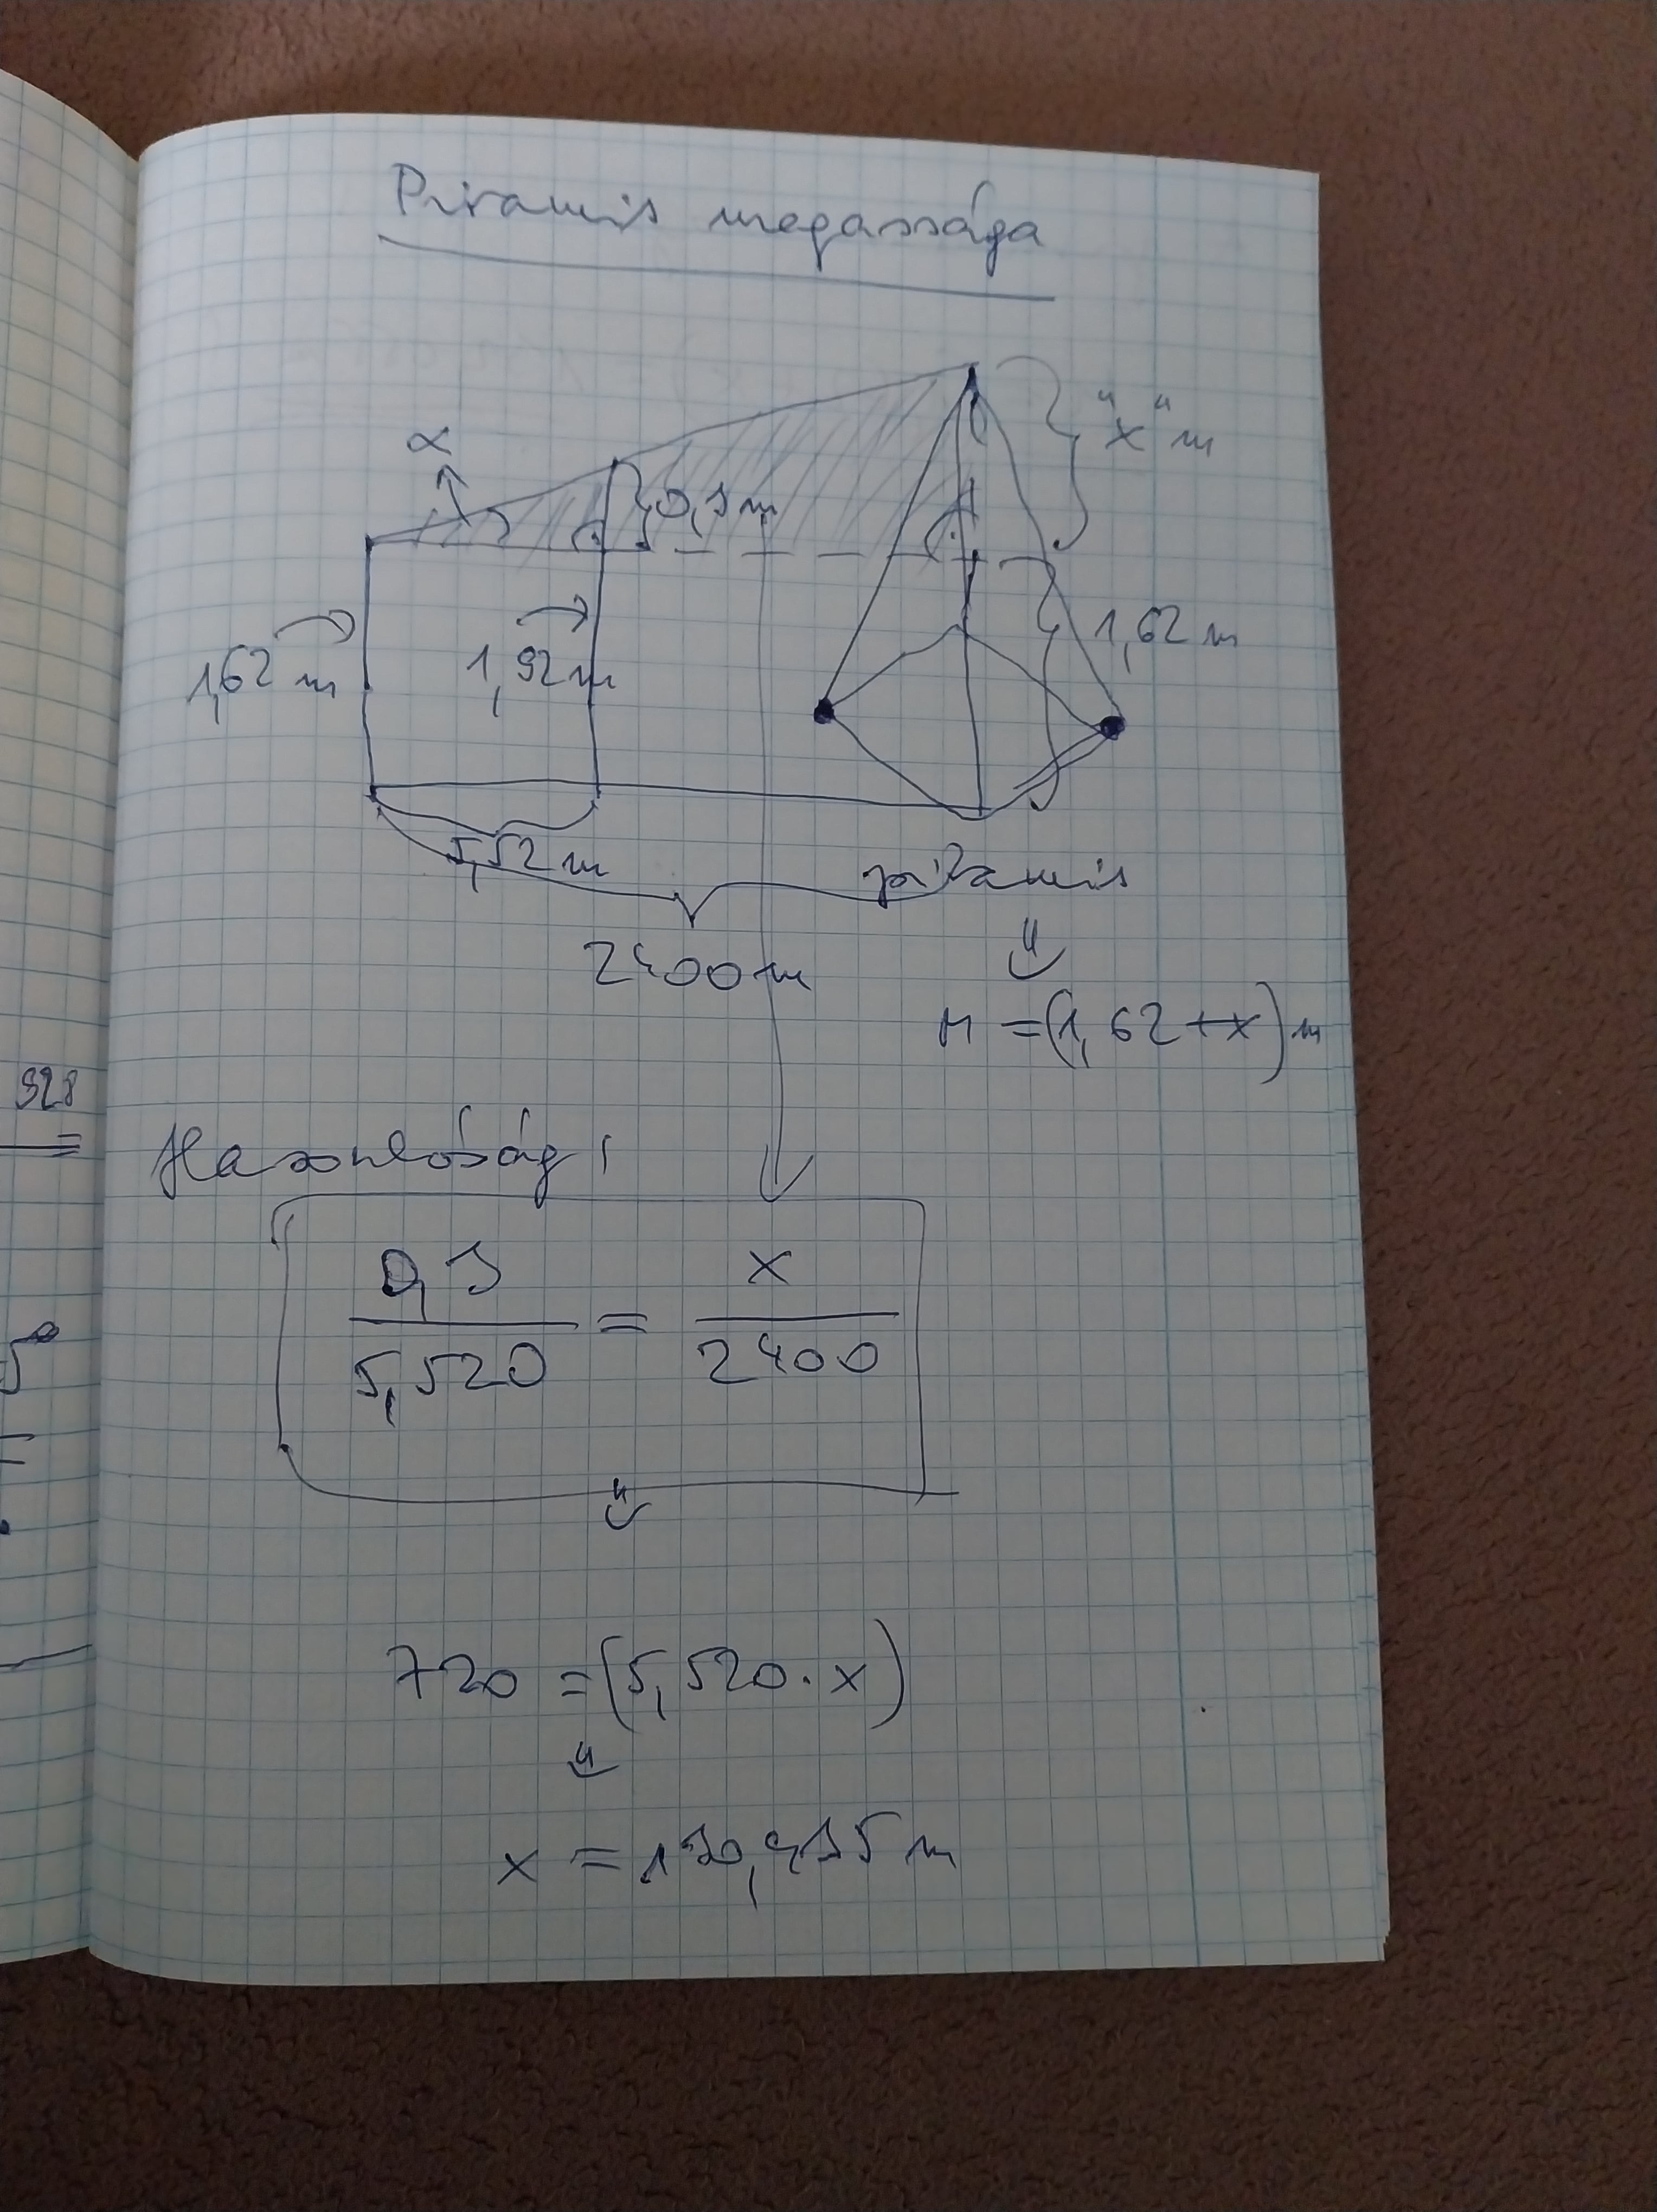 Piramis megassága
α
"x" m
0,3 m
1,62 m
1,92 m
1,62 m
5,52 m
piramis
2400 m
M = (1,62 + x) m
928
Hasonlóság:
0,3 / 5,520 = x / 2400
5°
720 = (5,520 · x)
x = 130,435 m